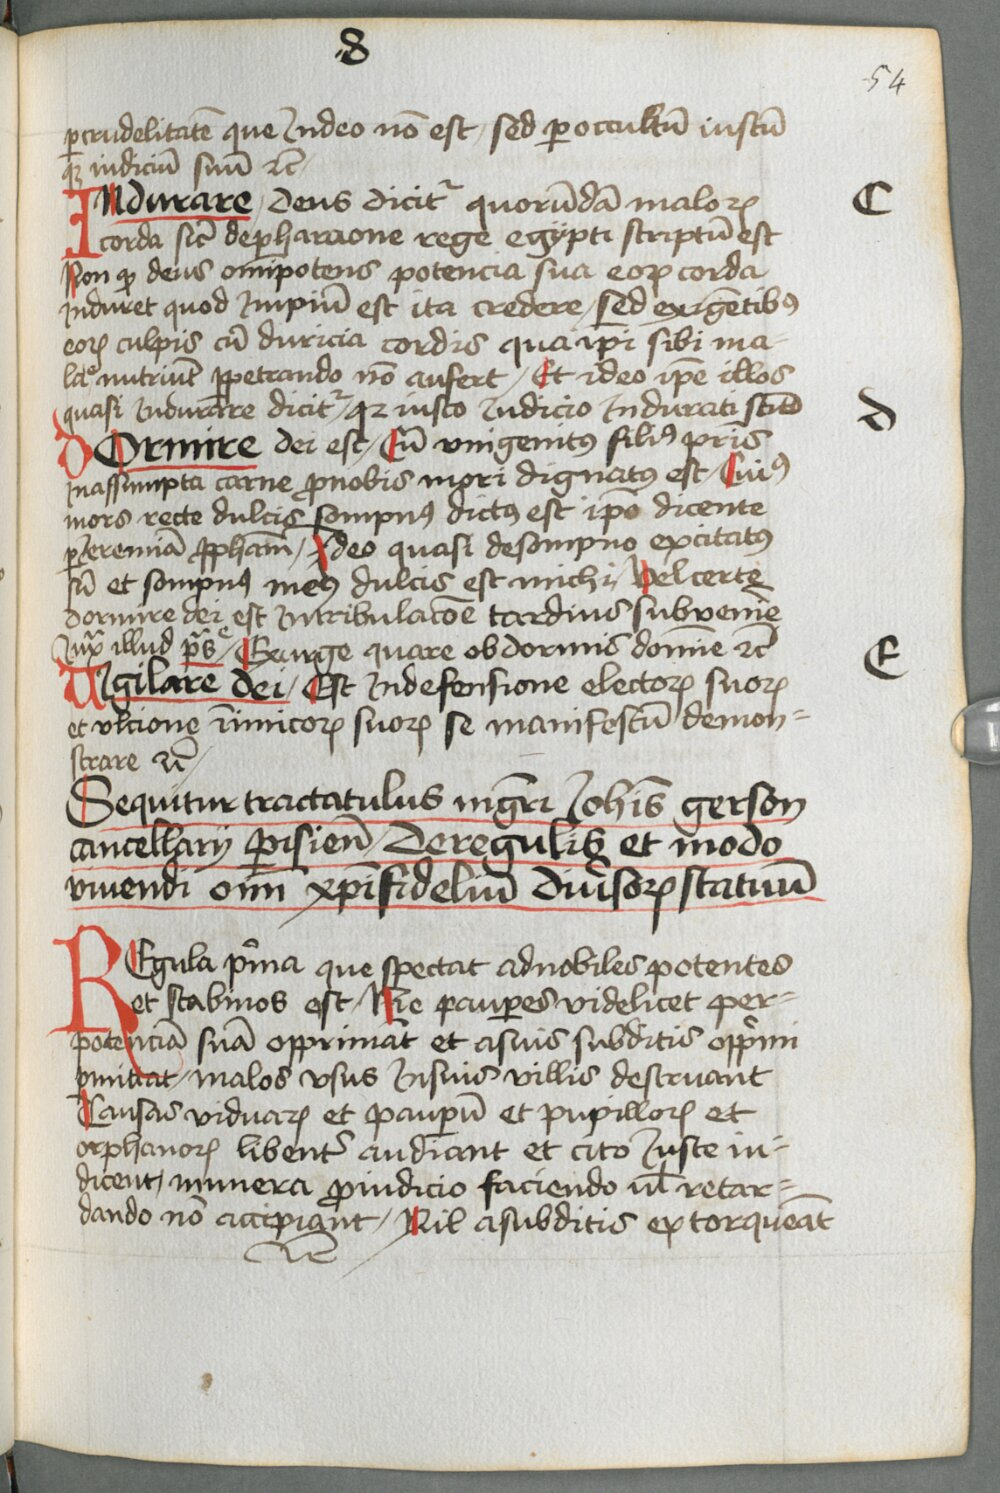 8
54
ꝑcrudelitatē que Indeo nō est / sed ꝑ occultū iustū
qꝫ iudiciū suū ꝛc̄ /
INdurare / deus dicit᷑ quorūdā maloꝝ
C
corda sic̄ depharaone rege egypti scriptū est
Non ꝙ deus om̄ipotens potencia sua eoꝝ corda
Induret quod Impiū est ita credere / sed exigētibꝰ
eoꝝ culpis cū duricia cordis qua ip̄i sibi ma-
nutriūt ꝑpetrando nō aufert / Et ideo ip̄e illos
quasi Indurare dicit᷑ / qꝫ iusto Iudicio Indurati
D
DOrmire dei est / Cū vnigenitꝰ filiꝰ pr̄is
Inassumpta carne ꝓnobis mori dignatꝰ est / Cuiꝰ
mors recte dulcis sompnꝰ dictꝰ est ip̄o dicente
ꝑ Jeremiā ꝓpham̄ / Ideo quasi desompno excitatꝰ
sū et sompnꝰ meꝰ dulcis est michi / Vel certe
dormire dei est Intribulac̄oe tardius subvenīe
Iux̄ illud p̄s / Exurge quare obdormis domīe ꝛc̄
E
VIgilare dei / Est Indefensione electoꝝ suoꝝ
et vlcione īimicoꝝ suoꝝ se manifestū demon=
strare ꝛc̄ /
Sequitur tractatulus mgr̄i Joh̄is gerson
cancellarij ꝑisieñ / De regulis et modo
viuendi om̄i xp̄ifideliū diūsoꝝ statuū
REgula p͛ma que spectat adnobiles potentes
et scabinos est / Ne pauꝑes videlicet per=
potenciā suā opprimāt et asuis subditis opp͛mi
ꝑmittāt / malos vsus Insuis villis destruant
Causas viduaꝝ et pauꝑū et pupilloꝝ et
orphanoꝝ libent᷑ audiant et cito Iuste iu-
dicent / munera ꝓiudicio faciendo ul̄ retar=
dando nō accipiant / Nil asubditis extorqueāt
ꝛc̄